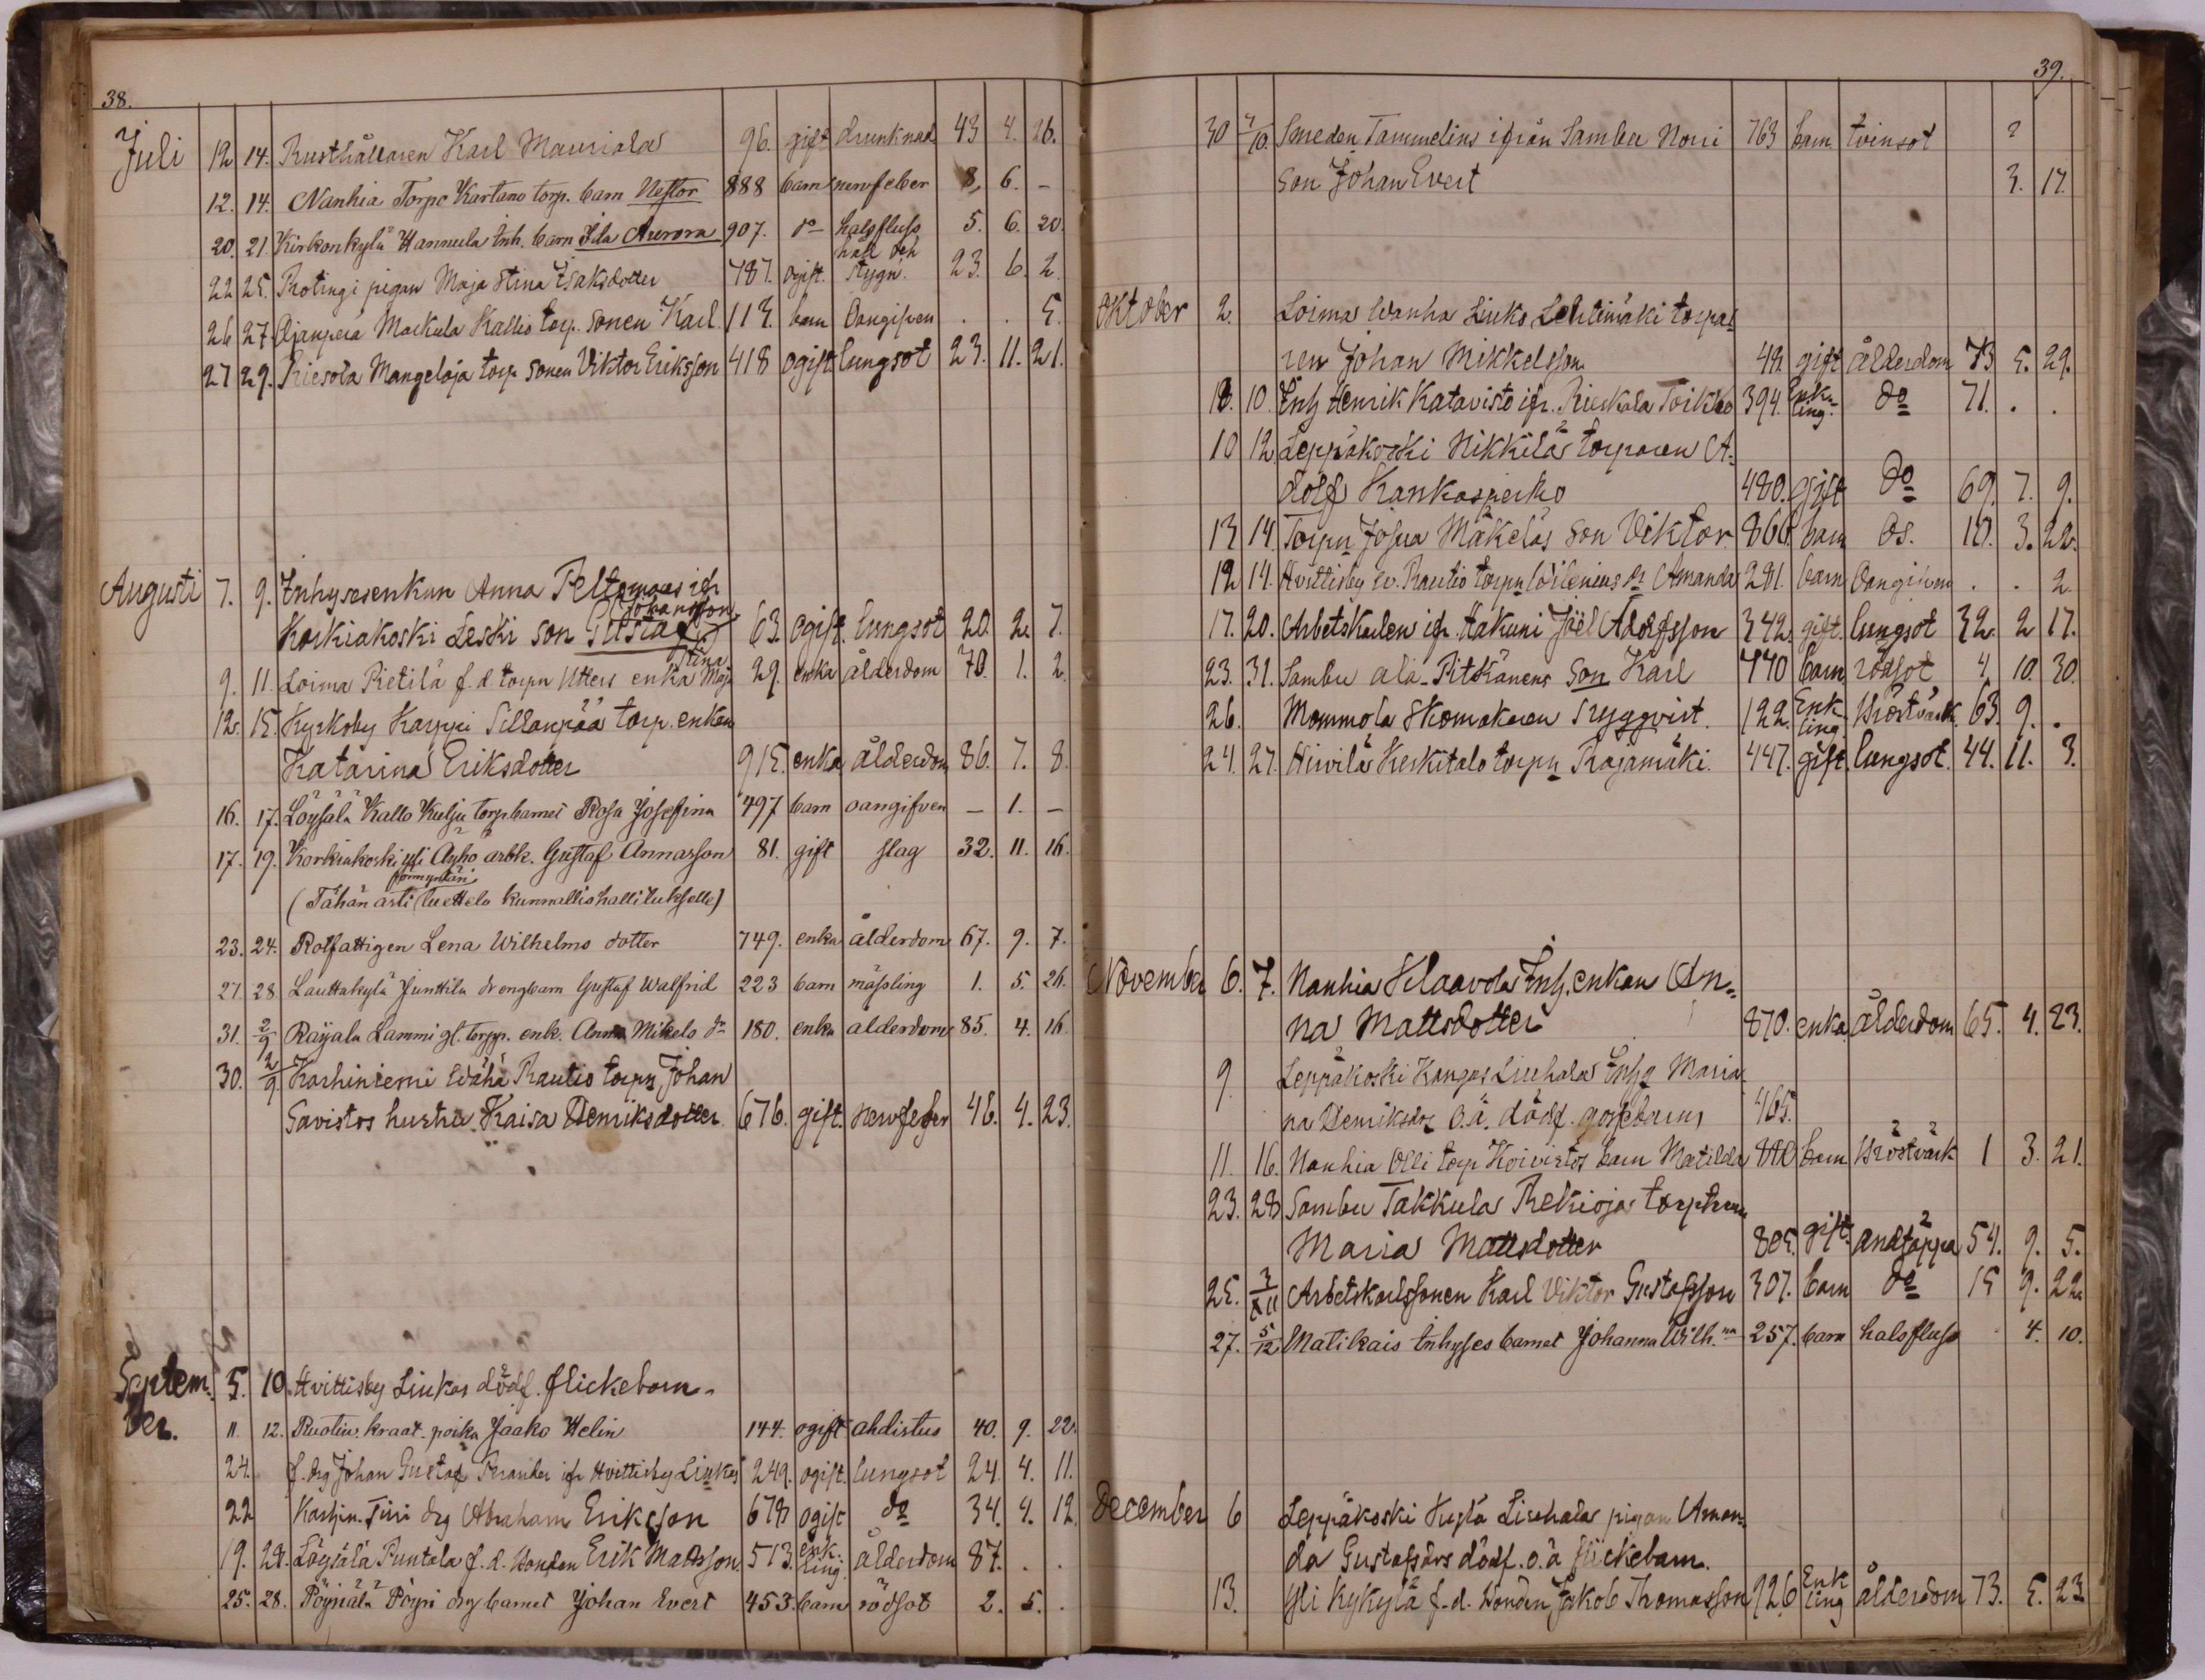 38.
Juli 12 14. Rusthållaren Karl Mauriala 96. gift drunknad 43 4. 26.
12. 14. Nanhia Torpo Kartano torp. barn Nestor 888 barn nervfeber 8, 6. -
20. 21. Kirkonkylä Hannula inh. barn Ida Aurora 907. do halsfluss 5. 6. 20.
håll och
22 25. Rotingi pigan Maja Stina Isaksdotter 787. ogift. stygn. 23. 6. 2.
26 27 Ojanperä Markula Kallio torp. sonen Karl. 113. barn Oangifven . . 5.
27 29. Riesola Mangeloja torp. sonen Viktor Eriksson 418 ogift lungsot 23. 11. 21.
Augusti 7. 9. Inhysesenkan Anna Peltomaas ifr
Johansson
Korkiakoski Leski son Gustaf 63. ogift. lungsot 20. 2. 7.
Stina
9. 11. Loima Pietilä f. d. torpn Utters enka Maj 29. enka ålderdom 70. 1. 2.
12. 15. Kyrkoby Karppi Sillanpää torp. enkan
Katarina Eriksdotter 915. enka ålderdom 86. 7. 8.
16. 17. Löysälä Kallo Kulju torp. barnet Rosa Josefina 497 barn oangifven - 1. -
17. 19. Korkiakoski yli Äyhö arbk. Gustaf Annasson 81. gift slag 32. 11. 16.
(Tähän asti luettelo kunnallishallitukselle)
23. 24. Rotfattigen Lena Wilhelms dotter 749. enka ålderdom 67. 9. 7.
27. 28. Lauttakylä Junttila drengbarn Gustaf Walfrid 223 barn mässling 1. 5. 26.
31. 2/9 Raijala Lammi gl. torpp. enk. Anna Mikels dr 180. enka ålderdom 85. 4. 16.
30. 2/9 Karhiniemi Wähä Rautio torpn Johan
Savistos hustru Kaisa Henriksdotter 676. gift. nervfeber 46. 4. 23.
Septem- 5. 10. Hvittisby Liukas dödf. flickebarn.
ber. 11. 12. Ruotiu. kraat. poika Jaako Helin 144. ogift ahdistus 40. 9. 22.
24. f. drg Johan Gustaf ifr Hvittisby Liukas 249. ogift. lungsot 24. 4. 11.
22 Karhin. Tiiri drg Abraham Eriksson 678 ogift do 34. 4. 12.
19. 28. Löysälä Puntala f. d. bonden Erik Matsson. 513. enk-ling. ålderdom 87. . .
25. 28. Pöyriälä Pöyri drg barnet Johan Evert 453. barn rödsot 2. 5. .
39.
30 7/10. Smeden Tammelins ifrån Sambu Nori 763 barn. tvinsot ?
son Johan Evert 3. 17.
Oktober 2. Loima Wanha Liuko Lehtimäki torpa-
ren Johan Mikkelsson 48. gift ålderdom 73 5. 29.
10. Inh Henrik Katavisto ifr. Rieskala Toikko 394. Enk-ling. do 71. . .
10 12. Leppäkoski Nikkilä torparen A-
dolf Kankasperko 480. gift do 69. 7. 9.
13 14. Torpn Josua Mäkeläs son Viktor 860. barn Os. 10. 3. 22.
12 14. Hvittisby w. Rautio torpn Wilenius dr Amanda 281. barn Oangifven . . 2.
17. 20. Arbetskarlen ifr. Hakuni Joël Adolfsson 342. gift. lungsot 32. 2 17.
23. 31. Sambu ala-Pitkänens son Karl 770 barn rödsot 4. 10. 30.
26. Mommola Skomakaren Tryggvist. 122. Enk-ling Bröstvärk 63. 9. .
24. 27. Hirvilä Keskitalo torpn Rajamäki. 447. gift. lungsot. 44. 11. 3.
November 6. 7. Nanhia Klaavola Inh. enkan An-
na Mattsdotter 870. enka. ålderdom 65. 4. 23.
9. Leppäkoski Kangas Liuhala Inhp Maria-
na Henriksdr O.ä. dödf. gossebarn, 465.
11. 16. Nanhia Olli torp Koivistos barn Matilda barn Bröstvärk 1 3. 21.
23. 28 Sambu Takkula Rekioja
Maria Mattsdotter 805. gift. andtäppa 54. 9. 5.
25. 3/XII Arbetskarlssonen Karl Viktor Gustafsson 307. barn do 15 9. 22.
27. 5/12 Matikais inhyses barnet Johanna Wilh.na 257. barn halsfluss . 4. 10.
December 6 Leppäkoski Liuhala pigan Aman-
da Gustafsdrs dödf. o.ä flickebarn.
13. Yli Kykylä f. d. bonden Jakob Thomasson 726 Enk-ling ålderdom 73. 5. 23